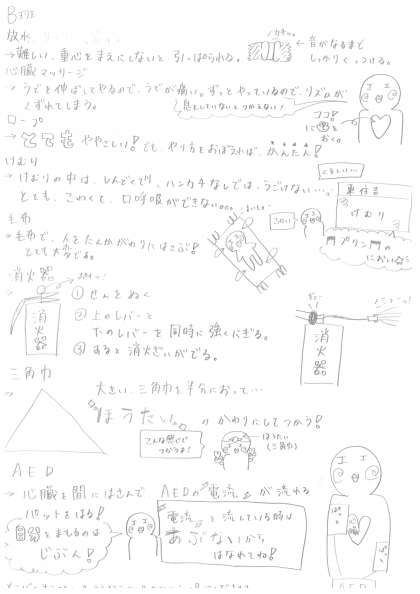 放水
→難しい。重心をまえにしないと引っぱられる。
← 音がなるまで
しっかりくっつける。
心臓マッサージ
→ うでを伸ばしてやるので、うでが痛い。ずっとやっているので、リズムが
くずれてしまう。
ココ!
おく。
ロープ
→ ややこしい! でも、やり方をおぼえれば、かんたん!
けむり
→ けむりの中は、しんどくて、ハンカチなしでは、うごけない…
とても、こわくて、口呼吸ができない。
けむり
プリン
におい
毛布
→ 毛布で、人をたんかがわりにはこぶ!
とても大変である。
消火器
① せんをぬく
② 上のレバーと
下のレバーを同時に強くにぎる。
③ すると消火ざいがでる。
消火器
消火器
三角巾
→ 大きい、三角巾を半分におって…
"ほうたい" のかわりにしてつかう!
こんな感じで
つかうよ!
ほうたい
(三角巾)
AED
→ 心臓を間にはさんで AEDの電流が流れる
パットをはる!
をまもるのは
じぶん!
電流を流している時は
あぶないから
はなれてね!
AED